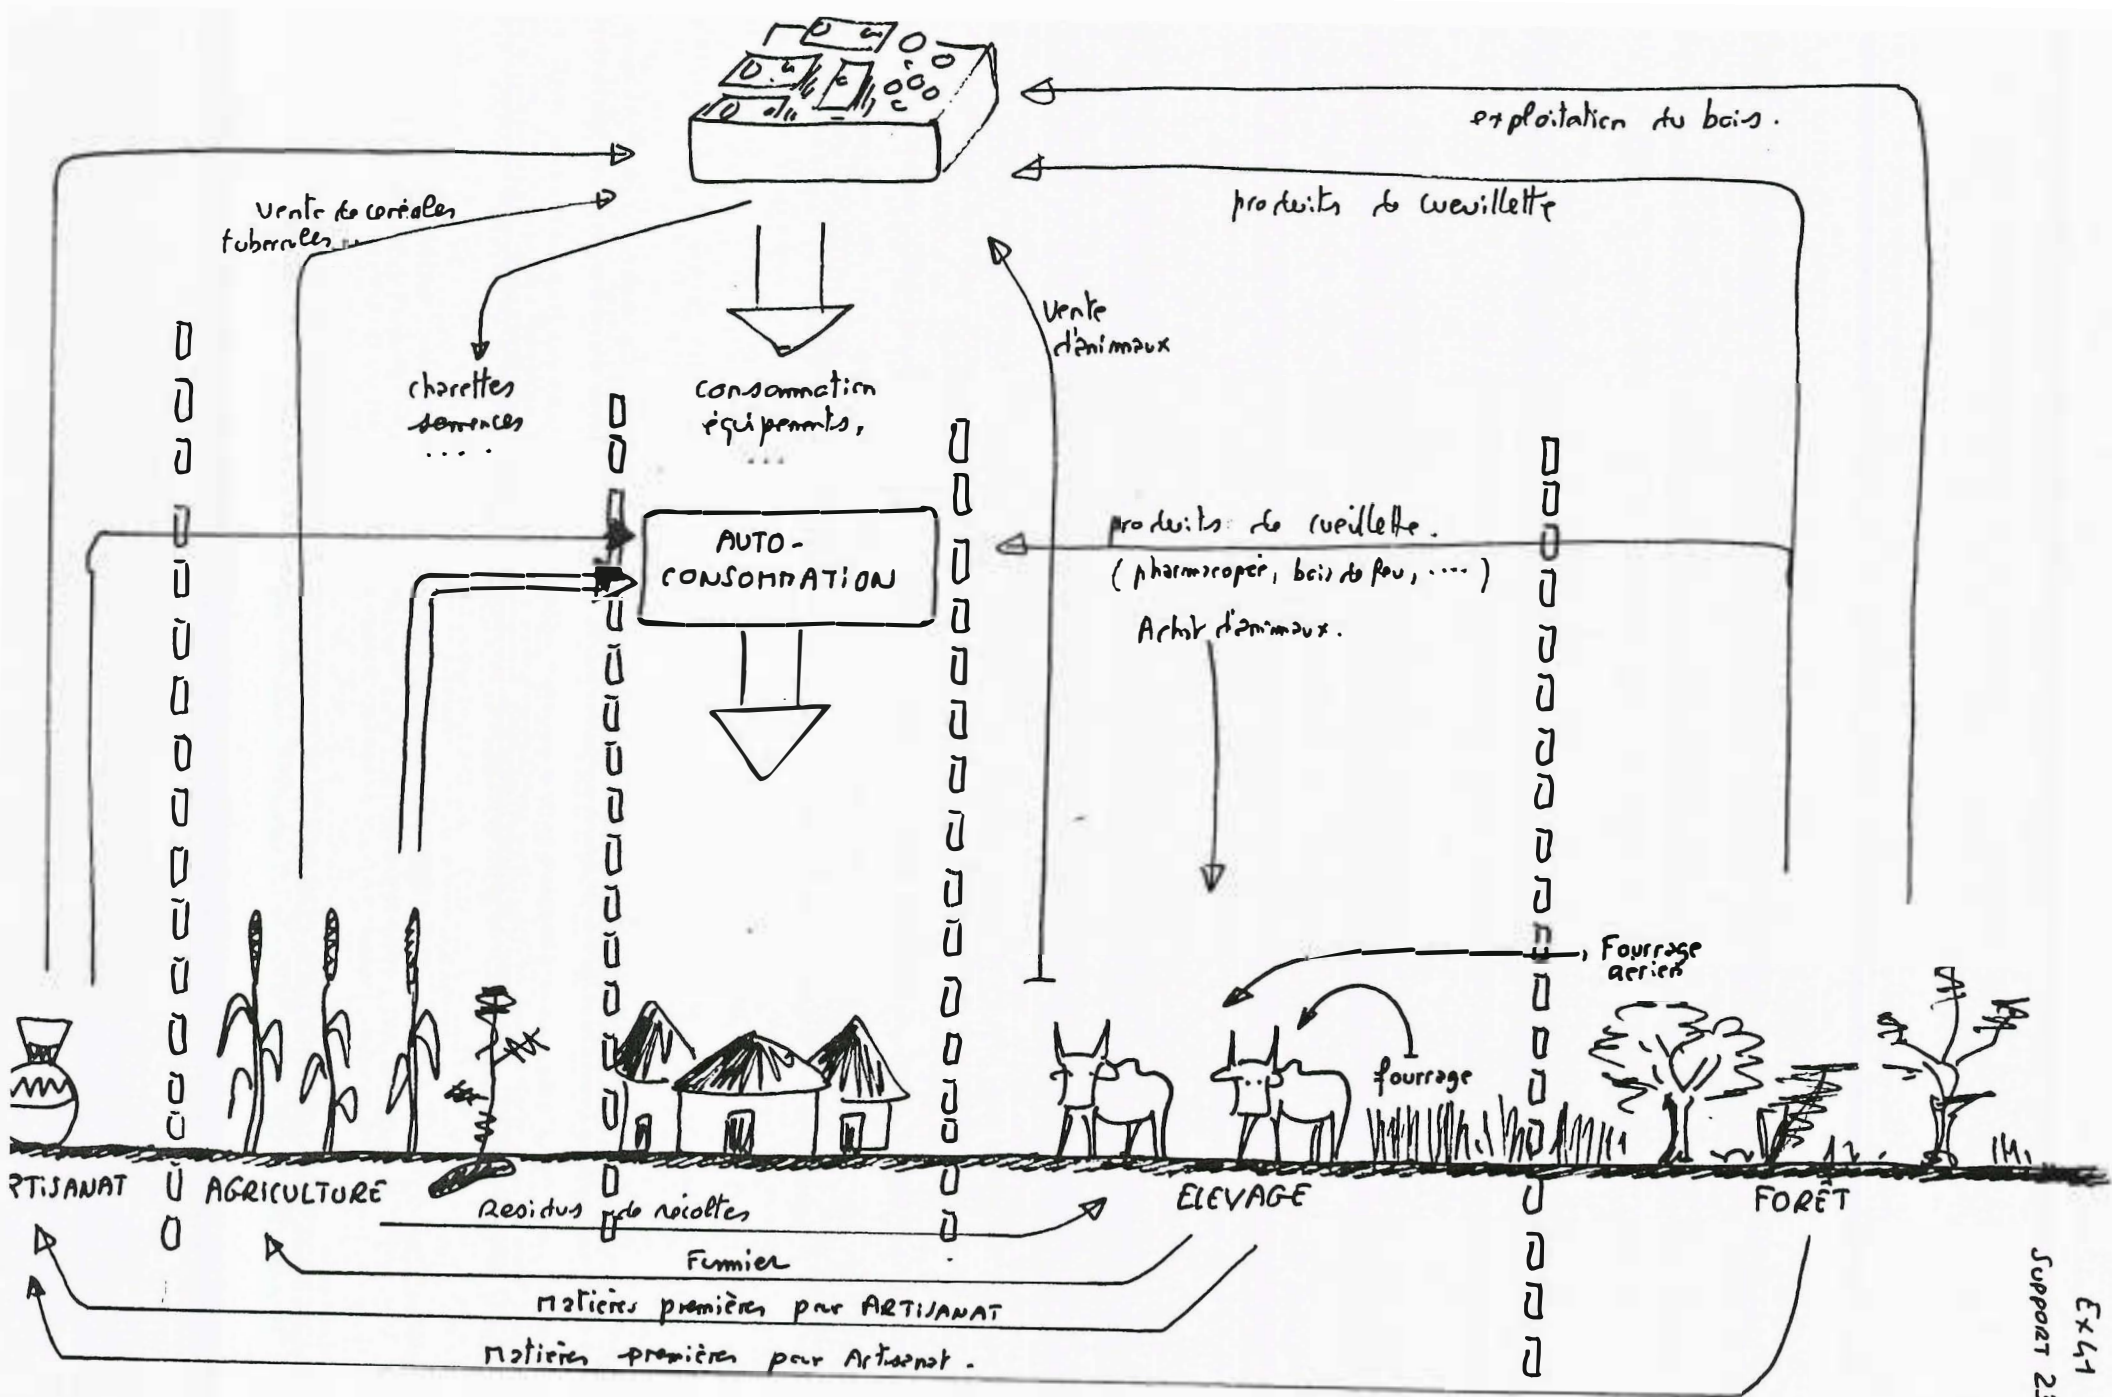 exploitation du bois.
produits de cueuillette
vente de céréales
tubercules...
vente
d'animaux
charettes
semences
....
consommation
équipements,
...
AUTO-
CONSOMMATION
produits de cueillette.
(pharmacopée, bois de feu, ....)
Achat d'animaux.
Fourrage
aerien
fourrage
RTISANAT
AGRICULTURE
ELEVAGE
FORÊT
Residus de récoltes
Fumier
Matières premières pour ARTISANAT
Matières premières pour Artisanat.
Ex 41
SUPPORT 23